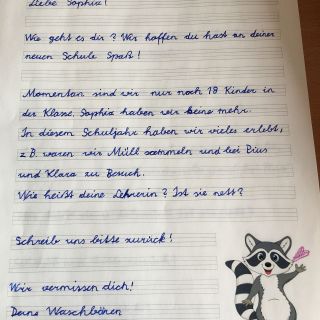 Liebe Sophia!
Wie geht es dir? Wir hoffen du hast an deiner
neuen Schule Spaß!
Momentan sind wir nur noch 18 Kinder in
der Klasse. Sophia haben wir keine mehr.
In diesem Schuljahr haben wir vieles erlebt,
z.B. waren wir Müll sammeln und bei Pius
und Klara zu Besuch.
Wie heißt deine Lehrerin? Ist sie nett?
Schreib uns bitte zurück!
Wir vermissen dich!
Deine Waschbären